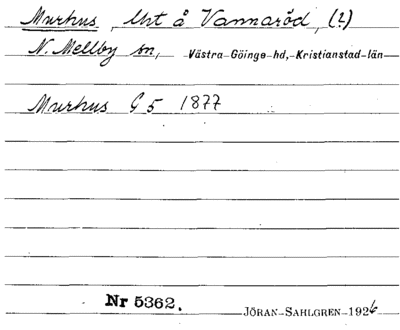 Murhus, Uxt å Vannaröd, (2)
N. Mellby sn, Västra Göinge hd, Kristianstad län
Murhus G 5 1877
Nr 5362.
JÖRAN SAHLGREN 1926